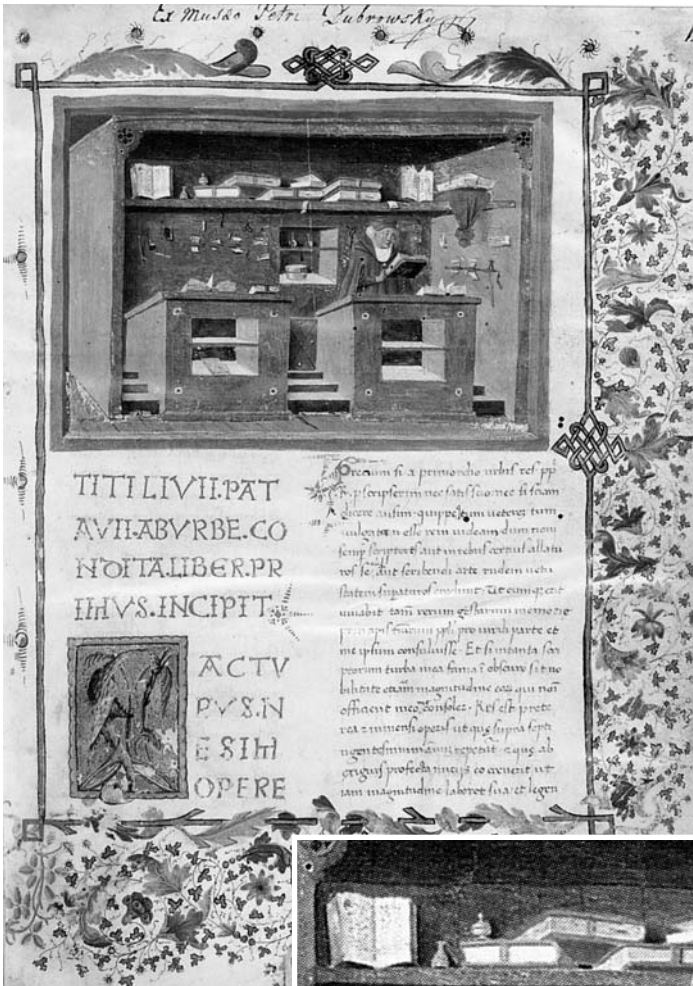 Ex Musæo Petri Dubrowsky
TITI LIVII.PAT
AVII.ABVRBE.CO
NDITA.LIBER.PR
IMVS.INCIPIT.
ACTV
RVS.N
E SIM
OPERE
precium si a primordio urbis res
pscripserim nec satis scio nec si sciam
dicere ausim. quippe cum
esse rem uideam dum noui
semp scriptores aut in rebus certius allatu
ros se. aut scribendi arte rudem uetu
statem supaturos credunt. Ut cumque erit
iuuabit tam rerum gestarum memorie
pro uirili parte et
me ipsum consuluisse. Et si in tanta scri
ptorum turba mea fama i obscuro sit no
bilitate etiam magnitudine qui
officient meo consoler. Res est prete
rea inmensi operis ut que supra septi
que ab
profecta eo creuerit ut
iam magnitudine laboret sua: et legen